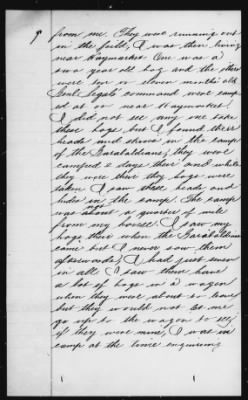 9 from me. They were running out
in the field, I was then living
near Haymarket One was a
two year old hog and the others
were ten or eleven months old
Genl Segals command were camp
ed at or near Haymarket.
I did not see any one take
these hogs but I found their
heads and skins in the camp
of the Garabaldians, they were
camped 2 days there and while
they were there my hogs were
taken I saw these heads and
hides in the camp. The camp
was about a quarter of mile
from my house. I saw my
hogs there when the Garabaldians
came but I never saw them
afterwards, I had just seven
in all. I saw them have
a lot of hogs in a wagon
when they were about to leave
but they would not let me
go up to the wagon to see
if they were mine, I was in
camp at the time enquiring